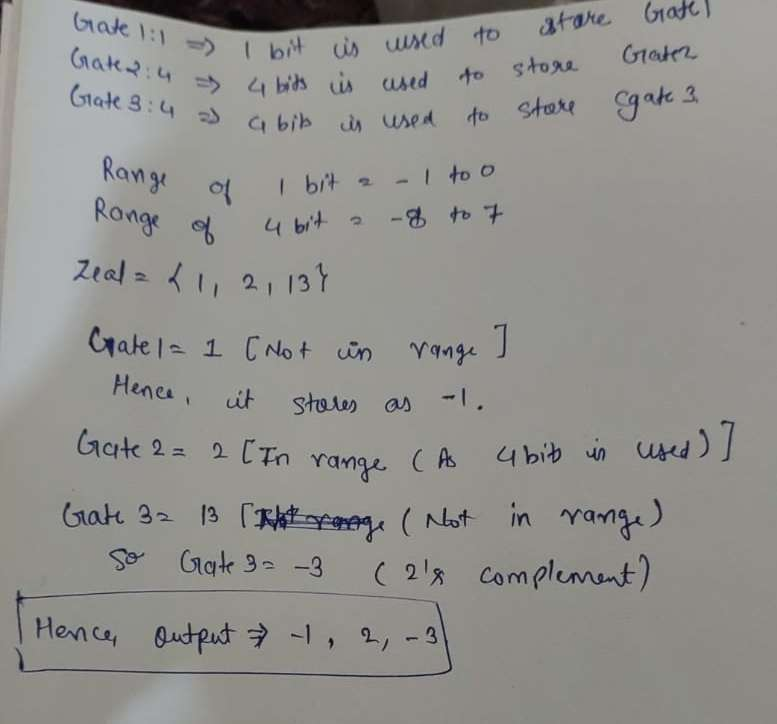 Gate 1:1 ⇒ 1 bit is used to store Gate1
Gate 2:4 ⇒ 4 bits is used to store Gate2
Gate 3:4 ⇒ 4 bits is used to store Gate 3.
Range of 1 bit = -1 to 0
Range of 4 bit = -8 to 7
Zeal = {1, 2, 13}
Gate1 = 1 [Not in range]
Hence, it stores as -1.
Gate 2 = 2 [In range (As 4 bit is used)]
Gate 3 = 13 [(Not in range)
So Gate 3 = -3 (2's complement)
Hence, Output ⇒ -1, 2, -3